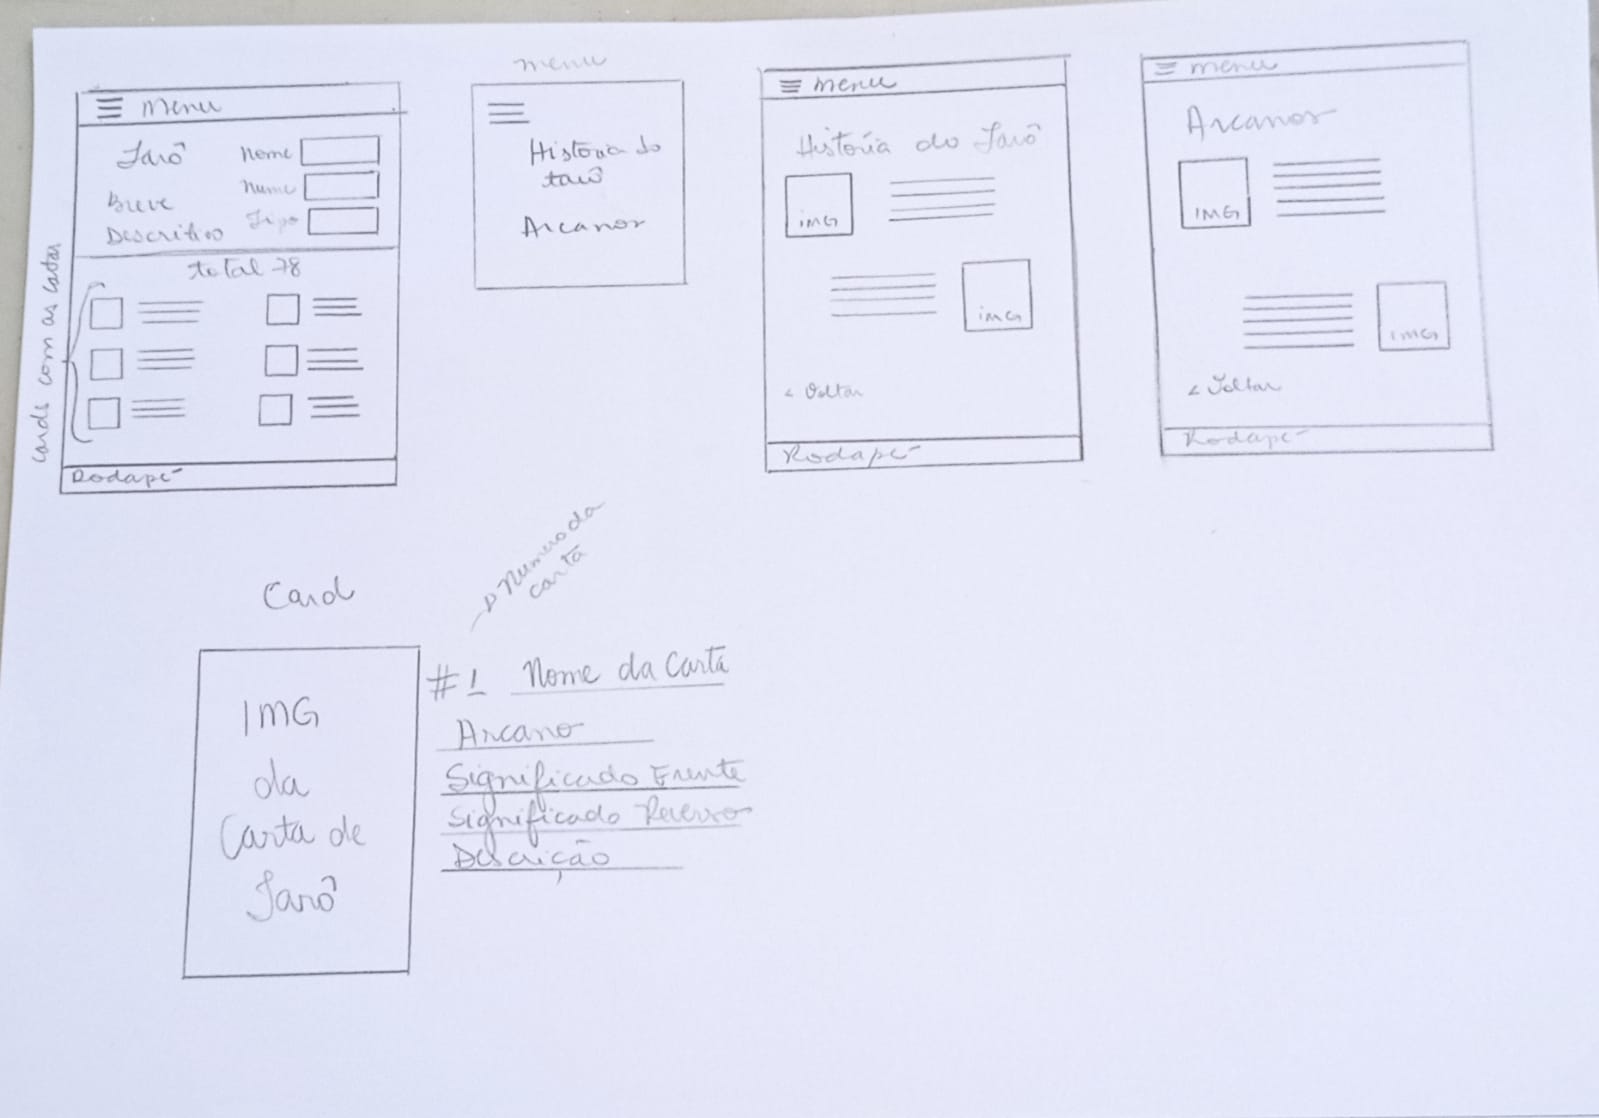 Menu
Tarô
Breve
Descritivo
Nome
Nume
Tipo
total 78
cards com as catas
Rodapé
menu
História do
tarô
Arcanos
menu
História do Tarô
IMG
IMG
< Voltar
Rodapé
menu
Arcanos
IMG
IMG
< Voltar
Rodapé
Card
Numero da
carta
IMG
da
Carta de
Tarô
#1 Nome da Carta
Arcano
Significado Frente
Significado Reverso
Descrição